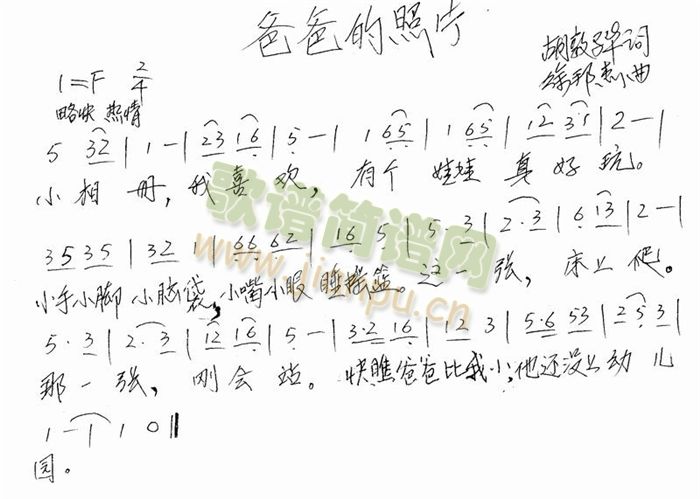 爸爸的照片
胡敦骅词
1=F 2/4
徐邦杰曲
略快 热情
5 32 | 1 - | 23 16 | 5 - | 1 65 | 1 65 | 12 31 | 2 - |
小相册,我喜欢,有个娃娃真好玩。
35 35 | 32 1 | 66 62 | 16 5 | 5 3 | 2·3 | 6 13 | 2 - |
小手小脚小脑袋,小嘴小眼睡摇篮。这一张,床上爬。
5·3 | 2·3 | 12 16 | 5 - | 3·2 16 | 12 3 | 5·6 53 | 25 3 |
那一张,刚会站。快瞧爸爸比我小,他还没上幼儿
1 - | 1 0 ‖
园。
歌谱简谱网
www.jianpu.cn